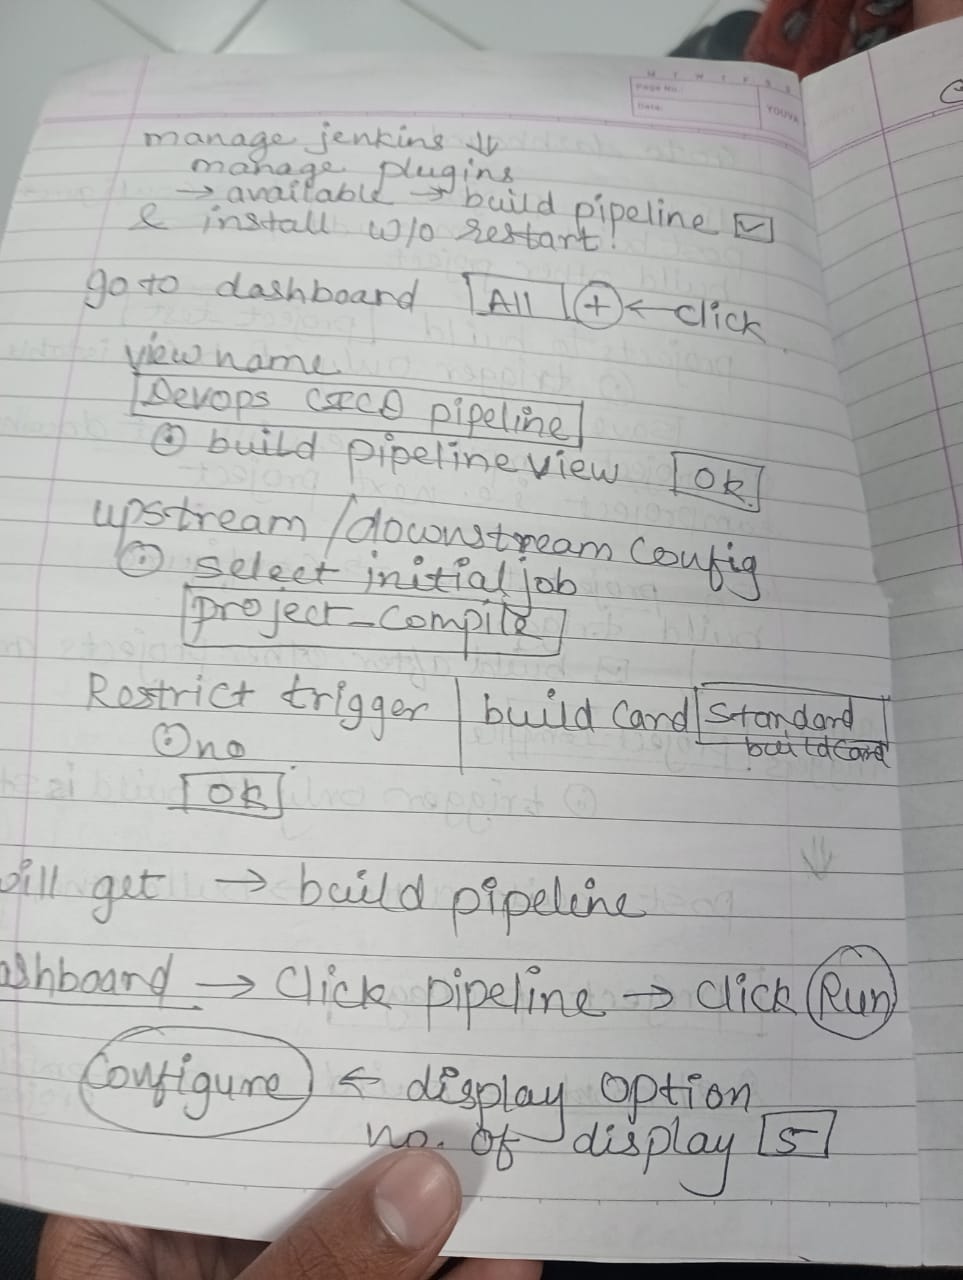 M T W T F S S
Page No.:
Date:
YOUVA
manage jenkins ↓
manage plugins
→ available → build pipeline ☑
& install w/o restart.
go to dashboard All + ← click
view name
Devops CICD pipeline
⊙ build pipeline view OK
upstream / downstream config
⊙ select initial job
project-compile
Restrict trigger | build card Standard build card
⊙ no
OK
will get → build pipeline
ashboard → Click pipeline → click Run
Configure ← display option
no. of display 5